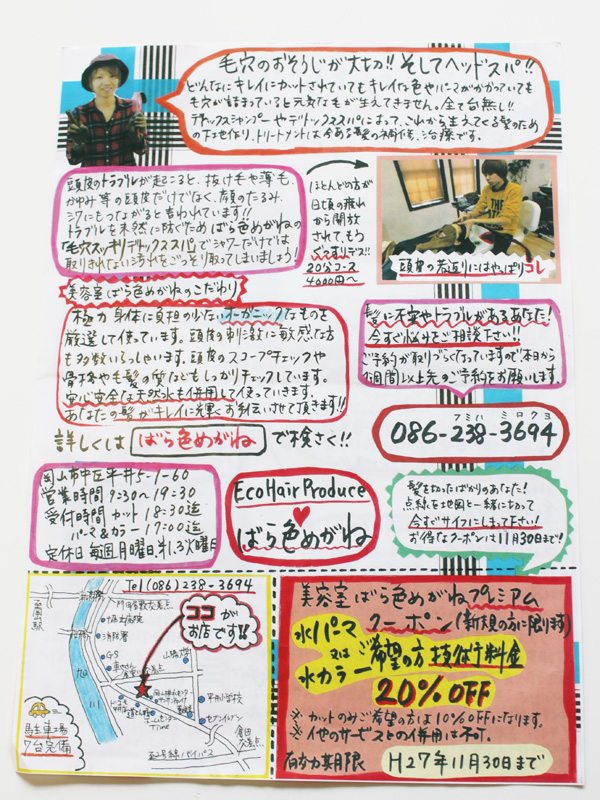 毛穴のおそうじが大切!! そしてヘッドスパ!!
どんなにキレイにカットされていてもキレイな色やパーマがかかっていても
毛穴が詰まっていると元気な毛が生えてきません。全て台無し!!
デトックスシャンプーやデトックススパによって、これから生えてくる髪のため
の下地作り、トリートメントは今ある髪の補修、治療です。
頭皮のトラブルが起こると、抜け毛や薄毛、
かゆみ等の頭皮だけでなく、顔のたるみ、
シワにもつながると言われています!!
トラブルを未然に防ぐためばら色めがねの
「毛穴スッキリデトックススパ」でシャワーだけでは
取りきれない汚れをごっそり取ってしまいましょう!
ほとんどの方が
日頃の疲れ
から開放
されて、もう
ぐっすりデス!!
20分コース
4000円〜
頭皮の若返りにはやっぱりコレ
美容室ばら色めがねのこだわり
極力身体に負担の少ないオーガニックなものを
厳選して使っています。頭皮の刺激に敏感な方
も多数いらっしゃいます。頭皮のスコープチェックや
骨格や毛髪の質などもしっかりチェックしています。
安心安全な天然ものも併用して使っていきます。
あなたの髪がキレイに輝くお手伝いさせて頂きます!!
髪に不安やトラブルがあるあなた!
今すぐ悩みをご相談下さい!!
ご予約が取りづらくなっていますので本日から
1週間以上先のご予約をお願いします。
フミハ ミロクヨ
086-238-3694
詳しくは ばら色めがね で検さく!!
岡山市中区平井5-1-60
営業時間 9:30〜19:30
受付時間 カット 18:30迄
パーマ&カラー 17:00迄
定休日 毎週月曜日、第1.3火曜日
Eco Hair Produce
ばら色めがね
髪を切ったばかりのあなた!
点線を地図と一緒に切って
今すぐサイフにしまって下さい!
お得なクーポンは11月30日まで!
Tel (086) 238-3694
ココが
お店です!!
消防署
GS
旭
川
平井小学校
セブンイレブン
倉田
交差点
国道2号線バイパス
駐車場
7台完備
美容室ばら色めがねプレミアム
クーポン(新規の方に限ります)
水パーマ
又は
水カラー
ご希望の方 技術料金
20%OFF
※カットのみご希望の方は10%OFFになります。
※他のサービスとの併用は不可。
有効期限 H27年11月30日まで